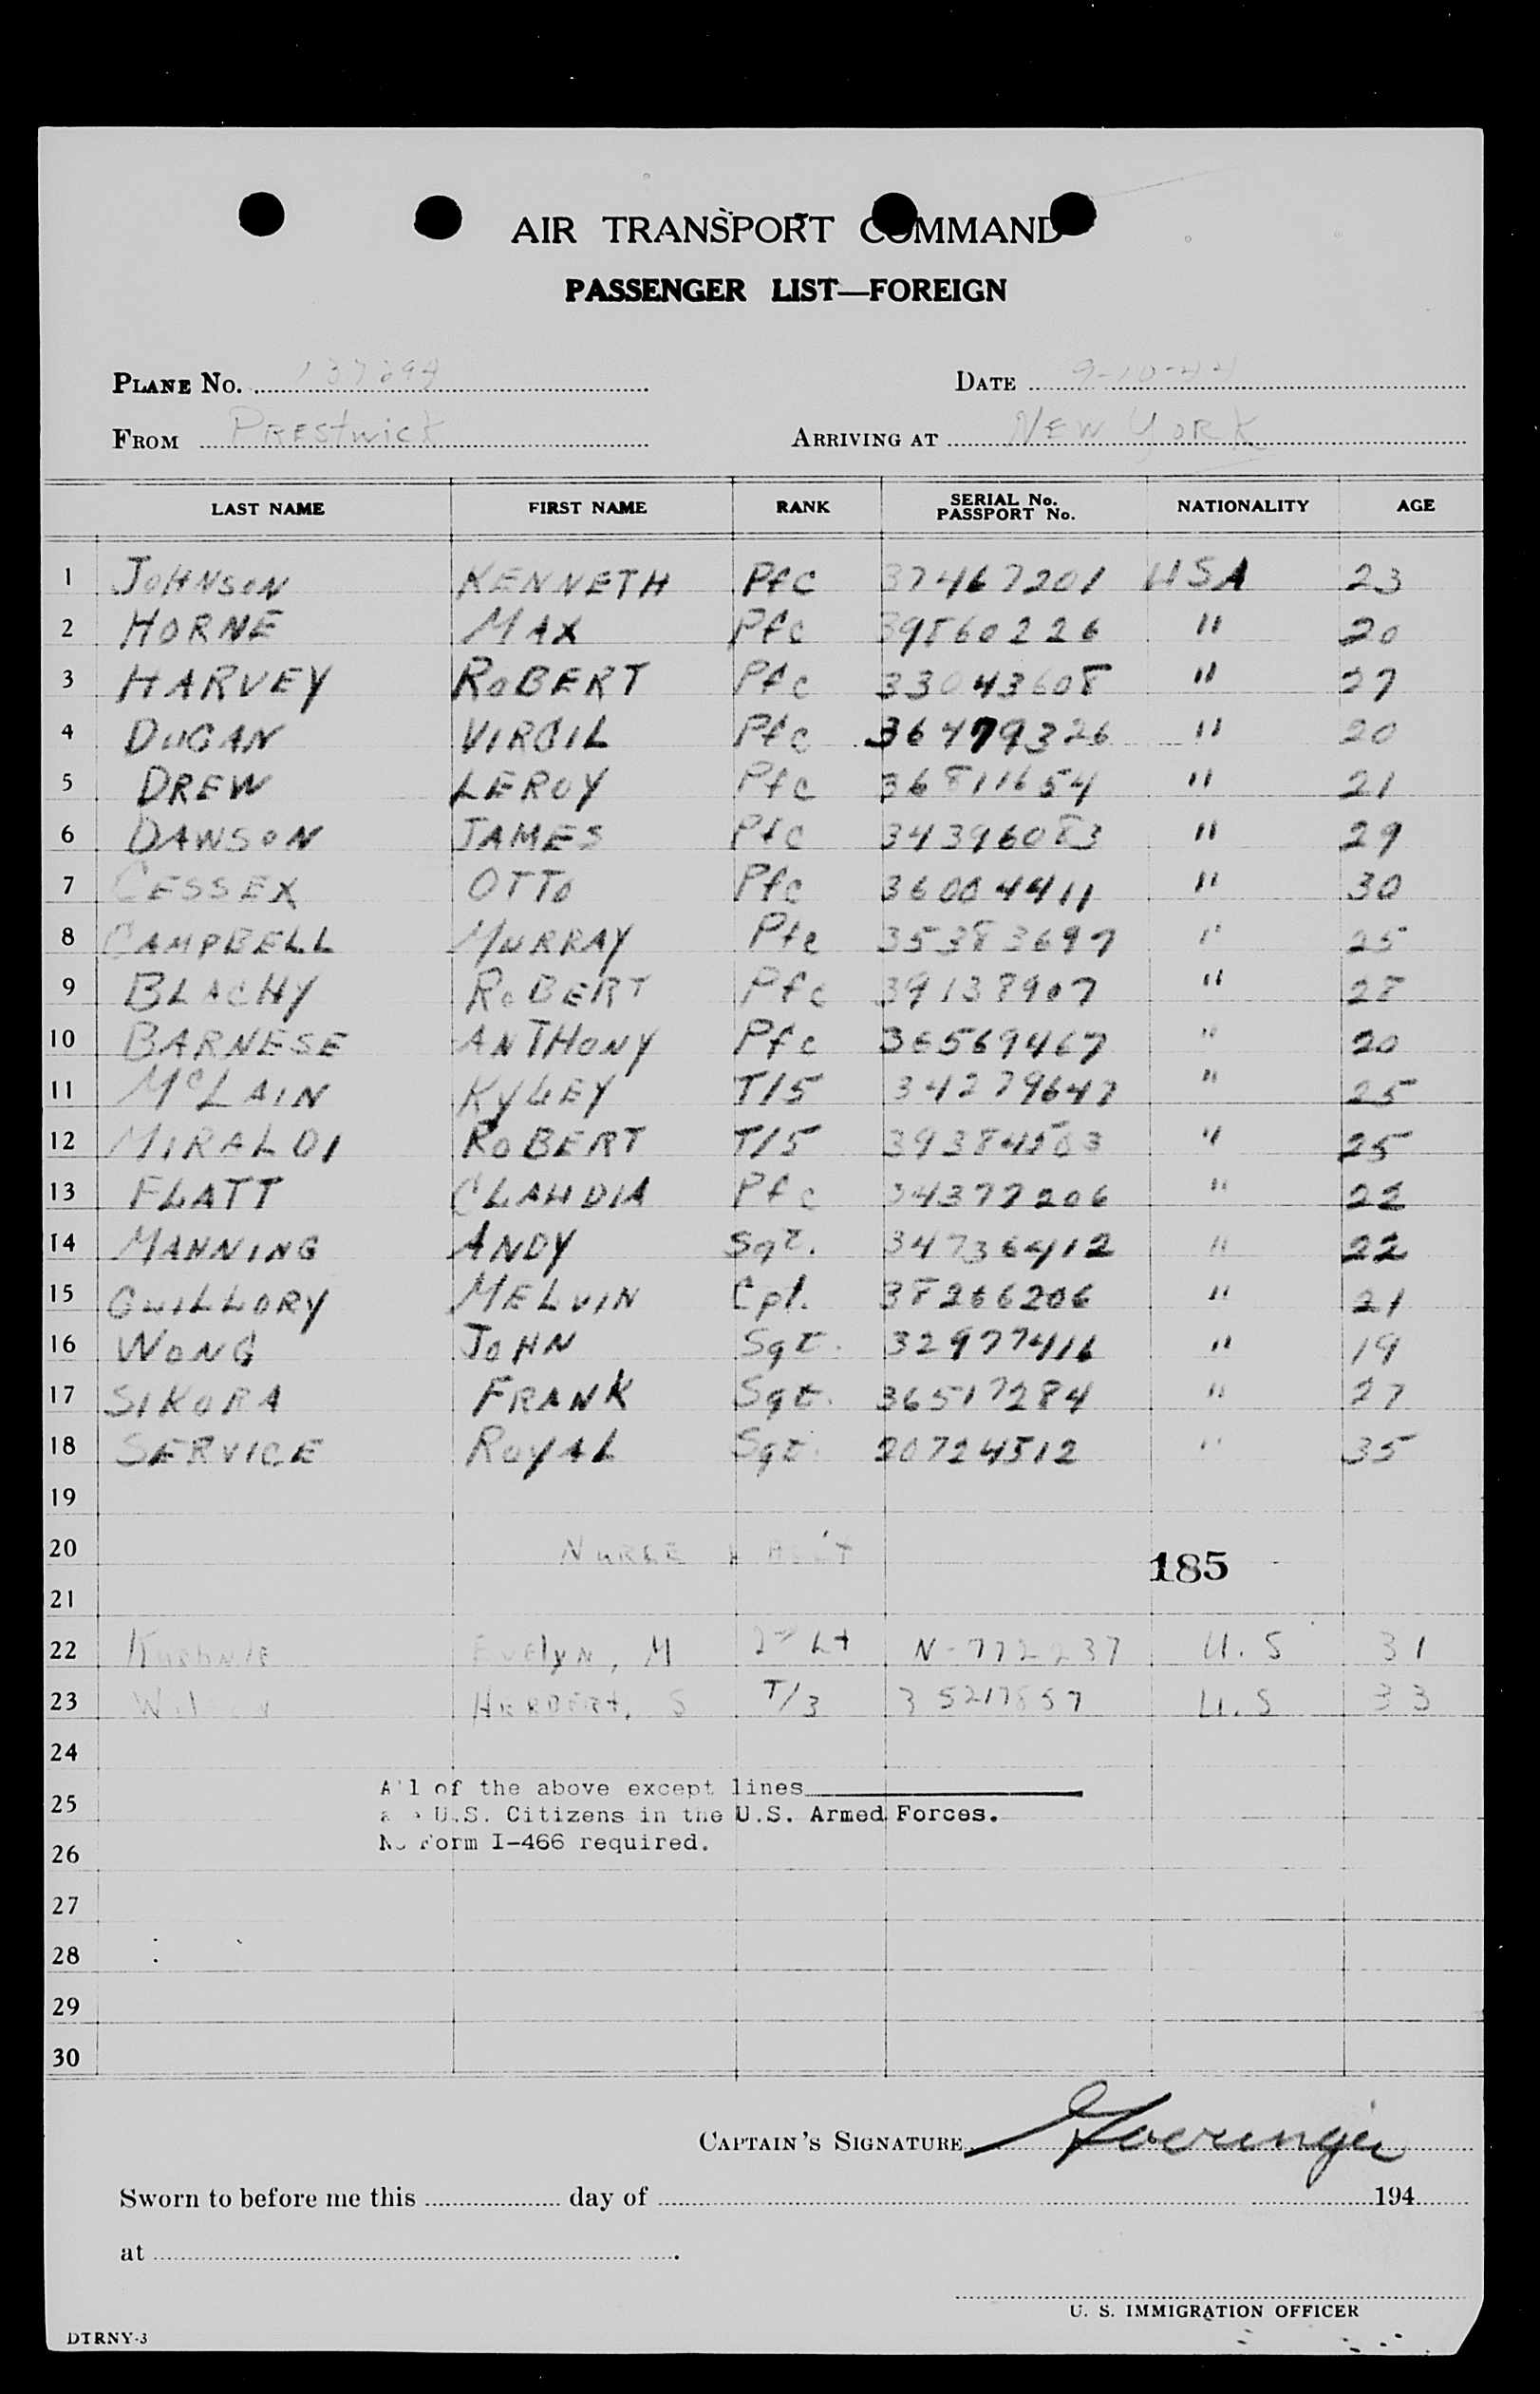 AIR TRANSPORT COMMAND
PASSENGER LIST—FOREIGN
PLANE No. DATE 9-10-44
FROM PRESTWICK ARRIVING AT NEW YORK
LAST NAME FIRST NAME RANK SERIAL No. PASSPORT No. NATIONALITY AGE
1 JOHNSON KENNETH Pfc 37467201 USA 23
2 HORNE MAX Pfc 39860226 " 20
3 HARVEY ROBERT Pfc 33043608 " 27
4 DUGAN VIRGIL Pfc 36479326 " 20
5 DREW LEROY Pfc 36811654 " 21
6 DAWSON JAMES Pfc 34396083 " 29
7 CESSEX OTTO Pfc 36004411 " 30
8 CAMPBELL MURRAY Pfc 35383697 " 25
9 BLACHY ROBERT Pfc 39138907 " 28
10 BARNESE ANTHONY Pfc 36569467 " 20
11 McLAIN KYLEY T/5 34279647 " 25
12 MIRALDI ROBERT T/5 " 25
13 FLATT CLAUDIA Pfc 34377206 " 22
14 MANNING ANDY Sgt. 34736412 " 22
15 GUILLORY MELVIN Cpl. 38266206 " 21
16 WONG JOHN Sgt. 32977416 " 19
17 SIKORA FRANK Sgt. 36517284 " 27
18 SERVICE ROYAL Sgt. 20724512 " 35
19
20 NURSE 185
21
22 EVELYN, M 2nd Lt N-772237 U.S 31
23 HERBERT, S T/3 35217857 U.S 33
24
All of the above except lines
25 are U.S. Citizens in the U.S. Armed Forces.
26 No Form I-466 required.
27
28
29
30
CAPTAIN'S SIGNATURE
Sworn to before me this day of 194
at .
U. S. IMMIGRATION OFFICER
DTRNY-3